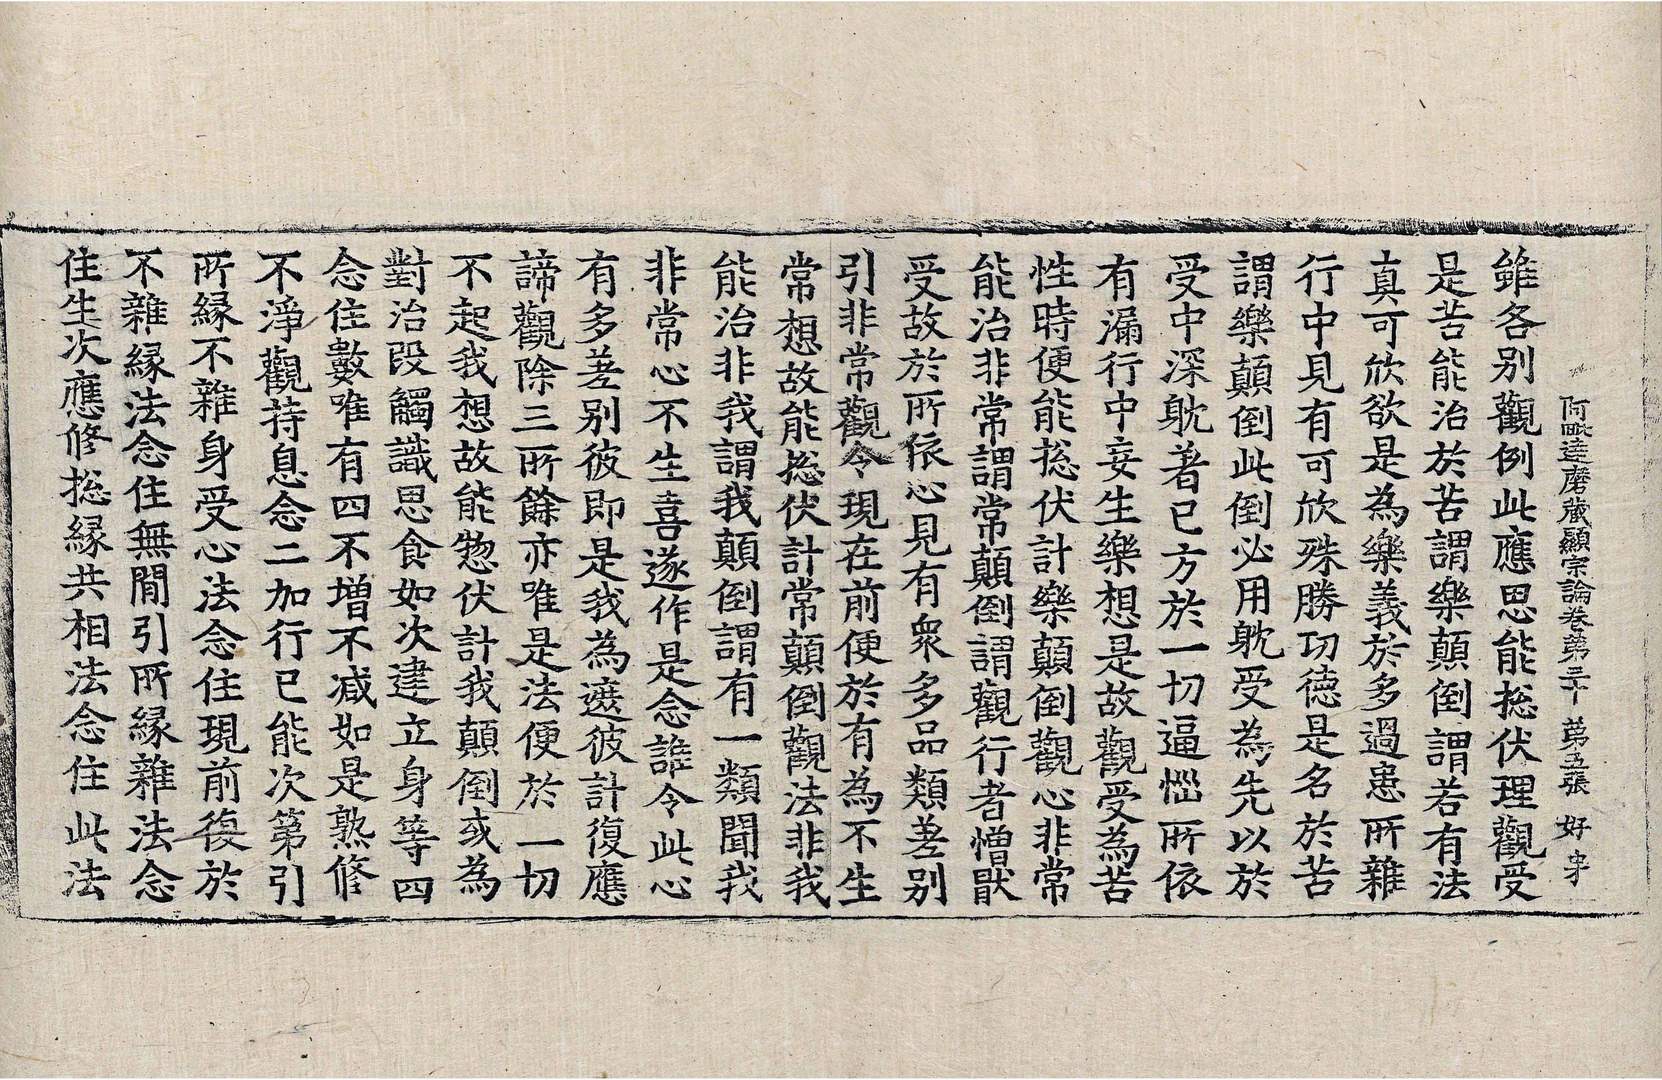 阿毗達磨藏顯宗論卷第三十 第五張 好
雖各別觀例此應思能捴伏理觀受
是苦能治於苦謂樂顚倒謂若有法
真可欣欲是為樂義於多過患所雜
行中見有可欣殊勝功德是名於苦
謂樂顚倒此倒必用躭受為先以於
受中深躭著已方於一切逼惱所依
有漏行中妄生樂想是故觀受為苦
性時便能捴伏計樂顚倒觀心非常
能治非常謂常顚倒謂觀行者憎猒
受故於所依心見有衆多品類差别
引非常觀令現在前便於有為不生
常想故能捴伏計常顚倒觀法非我
能治非我謂我顚倒謂有一類聞我
非常心不生喜遂作是念誰令此心
有多差别彼即是我為遮彼計復應
諦觀除三所餘亦唯是法便於一切
不起我想故能惣伏計我顚倒或為
對治段觸識思食如次建立身等四
念住數唯有四不增不減如是熟修
不淨觀持息念二加行已能次第引
所縁不雜身受心法念住現前復於
不雜縁法念住無間引所縁雜法念
住生次應修捴縁共相法念住此法